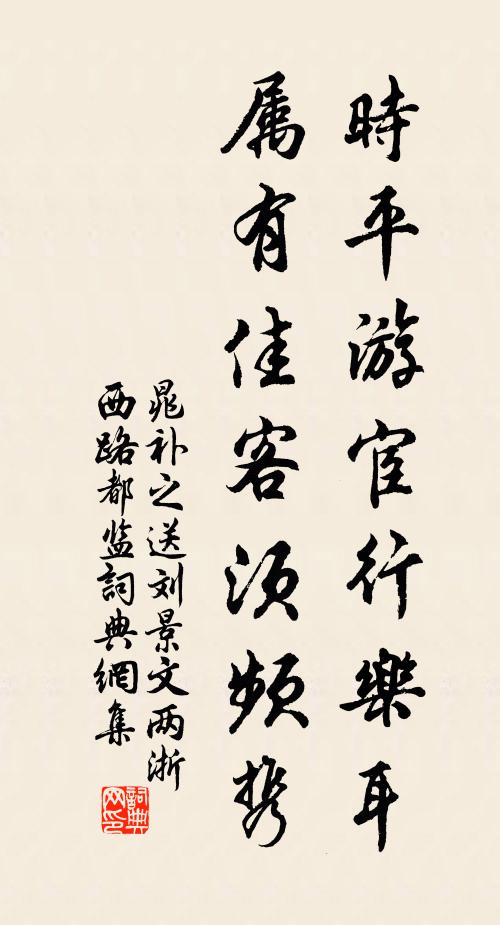 時平游宦行樂耳
属有佳客须频携
晁补之送刘景文两浙
西路都监詞典網集
詞典網印